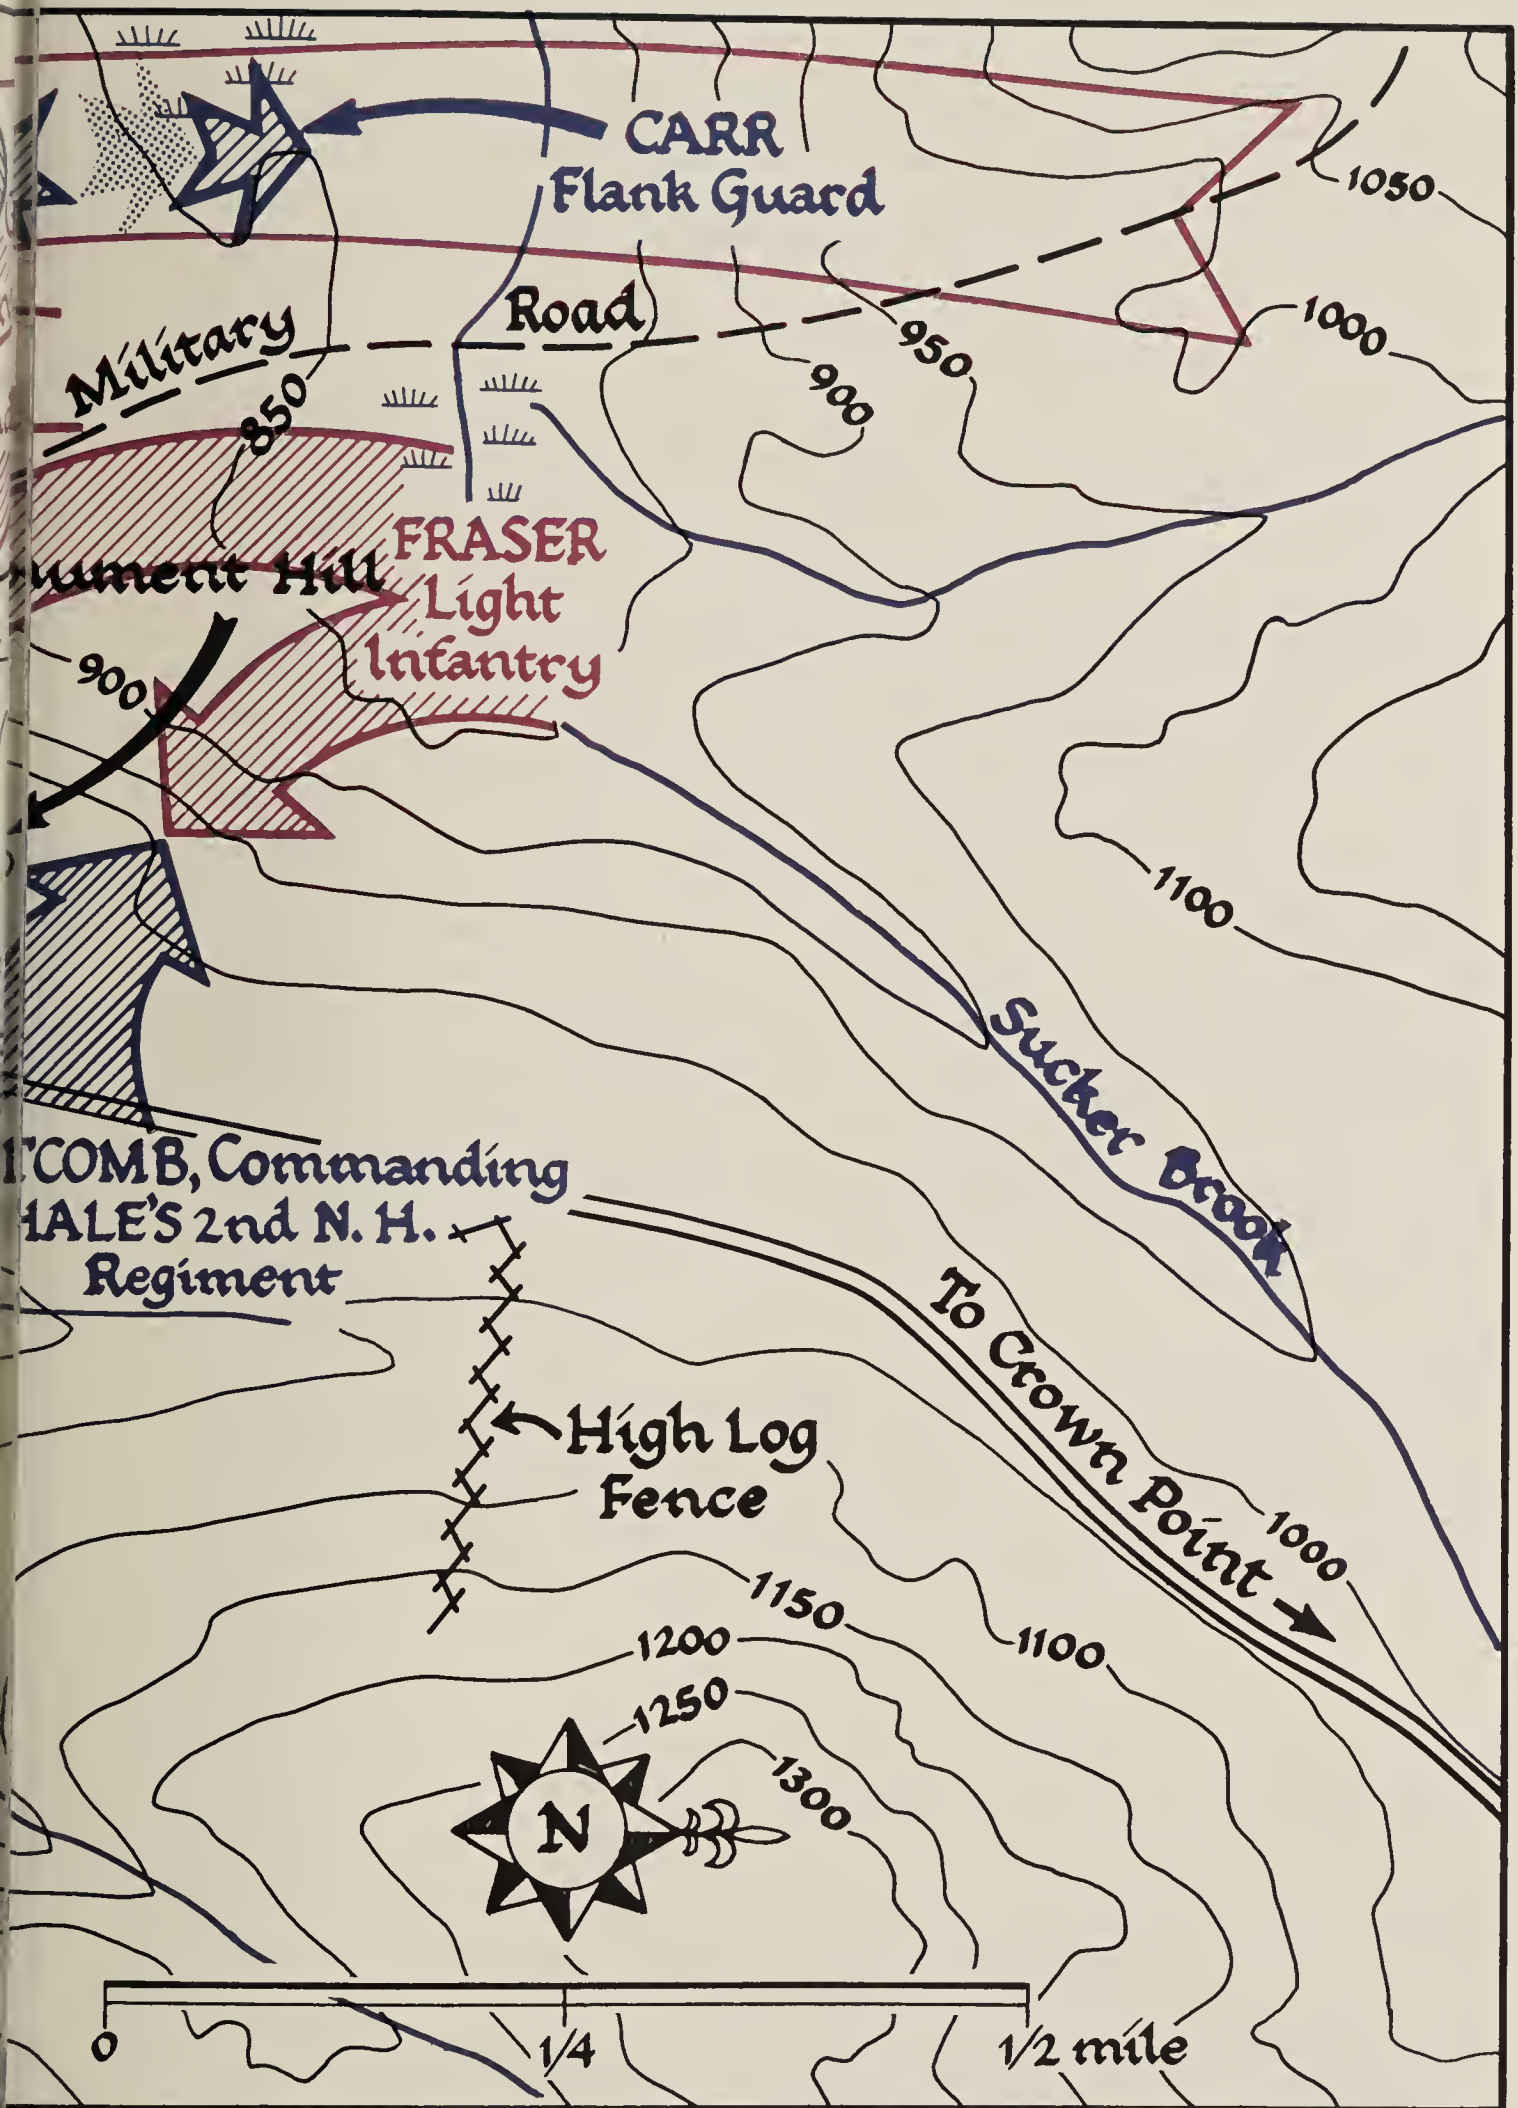 CARR
Flank Guard
1050
Military Road
1000
950
900
850
FRASER
Light
Infantry
Hill
900
1100
Sucker Brook
Commanding
2nd N. H.
Regiment
To Crown Point
High Log
Fence
1000
1150
1100
1200
1250
1300
N
0 1/4 1/2 mile